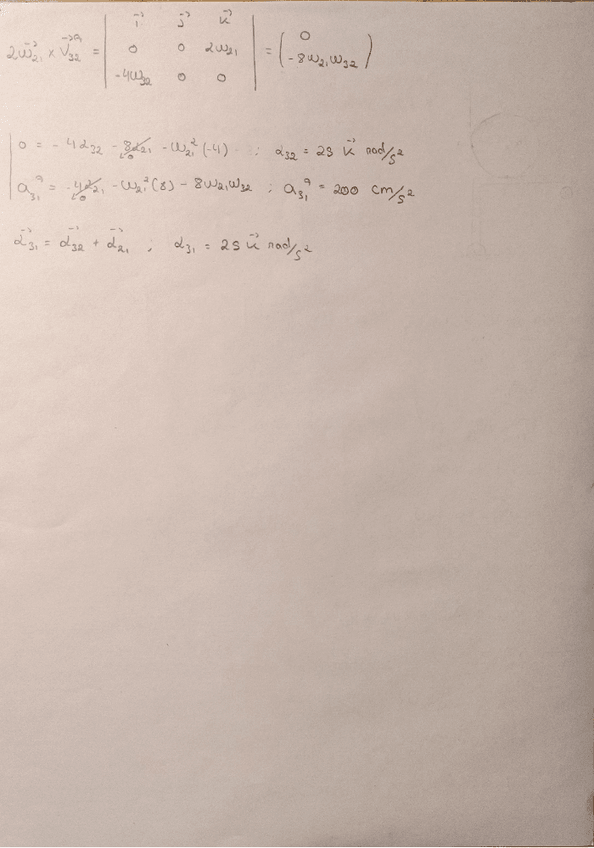 2ω⃗₂₁ × V⃗₃₂ᵃ = | i⃗ j⃗ k⃗ | 0 0 2ω₂₁ | -4ω₃₂ 0 0 | = ( 0 ; -8ω₂₁ω₃₂ )
0 = -4α₃₂ - 8α₂₁ - ω₂₁²(-4) ; α₃₂ = 25 k⃗ rad/s²
a₃₁ᵃ = -4α₂₁ - ω₂₁²(8) - 8ω₂₁ω₃₂ ; a₃₁ᵃ = 200 cm/s²
α⃗₃₁ = α⃗₃₂ + α⃗₂₁ ; α₃₁ = 25 k⃗ rad/s²